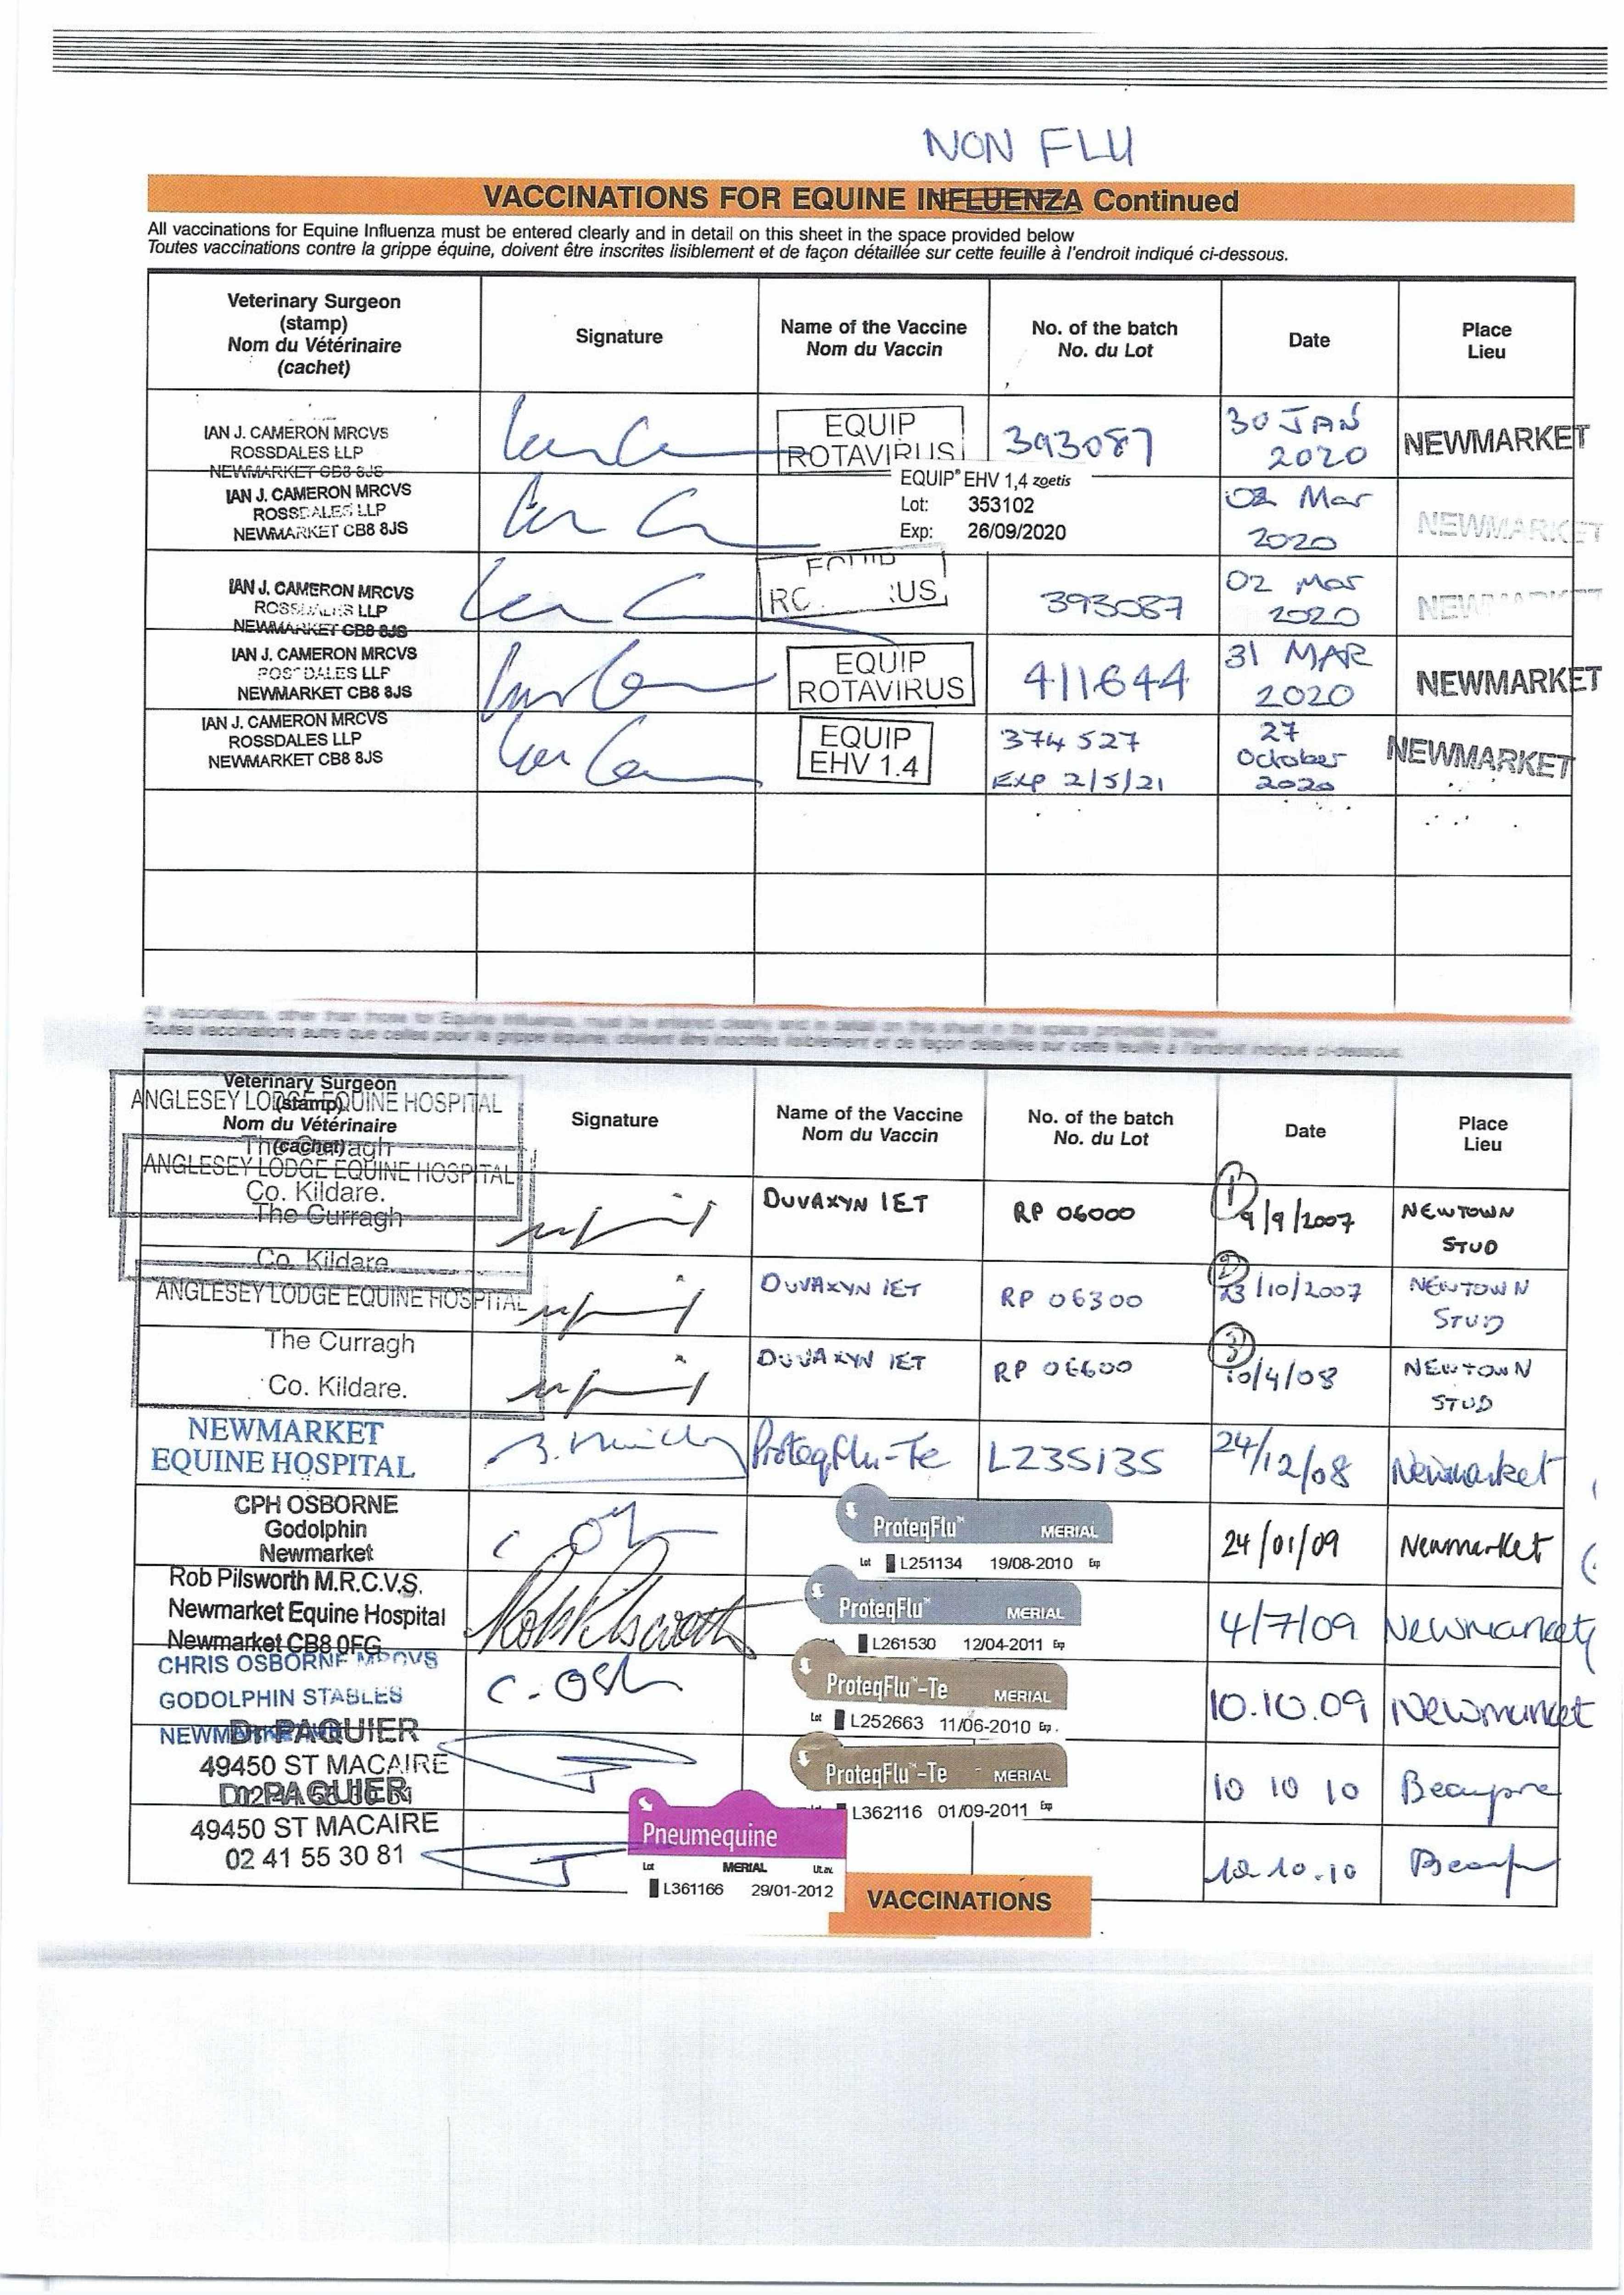 NON FLU
VACCINATIONS FOR EQUINE INFLUENZA Continued
All vaccinations for Equine Influenza must be entered clearly and in detail on this sheet in the space provided below
Toutes vaccinations contre la grippe équine, doivent être inscrites lisiblement et de façon détaillée sur cette feuille à l'endroit indiqué ci-dessous.
Veterinary Surgeon
(stamp)
Nom du Vétérinaire
(cachet)
Signature
Name of the Vaccine
Nom du Vaccin
No. of the batch
No. du Lot
Date
Place
Lieu
IAN J. CAMERON MRCVS
ROSSDALES LLP
NEWMARKET CB8 8JS
EQUIP
ROTAVIRUS
393087
30 JAN
2020
NEWMARKET
IAN J. CAMERON MRCVS
ROSSDALES LLP
NEWMARKET CB8 8JS
EQUIP® EHV 1,4 zoetis
Lot: 353102
Exp: 26/09/2020
02 Mar
2020
NEWMARKET
IAN J. CAMERON MRCVS
ROSSDALES LLP
NEWMARKET CB8 8JS
EQUIP
RO US
393087
02 Mar
2020
NEWMARKET
IAN J. CAMERON MRCVS
ROSSDALES LLP
NEWMARKET CB8 8JS
EQUIP
ROTAVIRUS
411644
31 MAR
2020
NEWMARKET
IAN J. CAMERON MRCVS
ROSSDALES LLP
NEWMARKET CB8 8JS
EQUIP
EHV 1.4
374527
Exp 2/5/21
27
October
2020
NEWMARKET
All vaccinations, other than those for Equine Influenza, must be entered clearly and in detail on this sheet in the space provided below.
Toutes vaccinations autre que celles pour la grippe équine, doivent être inscrites lisiblement et de façon détaillée sur cette feuille à l'endroit indiqué ci-dessous.
Veterinary Surgeon
(stamp)
Nom du Vétérinaire
(cachet)
Signature
Name of the Vaccine
Nom du Vaccin
No. of the batch
No. du Lot
Date
Place
Lieu
ANGLESEY LODGE EQUINE HOSPITAL
The Curragh
Co. Kildare.
DUVAXYN IET
RP 06000
1
9/9/2007
NEWTOWN
STUD
ANGLESEY LODGE EQUINE HOSPITAL
The Curragh
Co. Kildare
DUVAXYN IET
RP 06300
2
23/10/2007
NEWTOWN
STUD
ANGLESEY LODGE EQUINE HOSPITAL
The Curragh
Co. Kildare.
DUVAXYN IET
RP 06600
3
10/4/08
NEWTOWN
STUD
NEWMARKET
EQUINE HOSPITAL
ProteqFlu-Te
L235135
24/12/08
Newmarket
CPH OSBORNE
Godolphin
Newmarket
ProteqFlu™ MERIAL
Lot L251134 19/08-2010 Exp
24/01/09
Newmarket
Rob Pilsworth M.R.C.V.S.
Newmarket Equine Hospital
Newmarket CB8 0FG
Rob Pilsworth
ProteqFlu™ MERIAL
L261530 12/04-2011 Exp
4/7/09
Newmarket
CHRIS OSBORNE MRCVS
GODOLPHIN STABLES
NEWMARKET
C. Osb
ProteqFlu™-Te MERIAL
Lot L252663 11/06-2010 Exp.
10.10.09
Newmarket
Dr PAQUIER
49450 ST MACAIRE
ProteqFlu™-Te MERIAL
L362116 01/09-2011 Exp
10 10 10
Beaupre
Dr PAQUIER
49450 ST MACAIRE
02 41 55 30 81
Pneumequine
Lot MERIAL Ut.av.
L361166 29/01-2012
10.10.10
VACCINATIONS